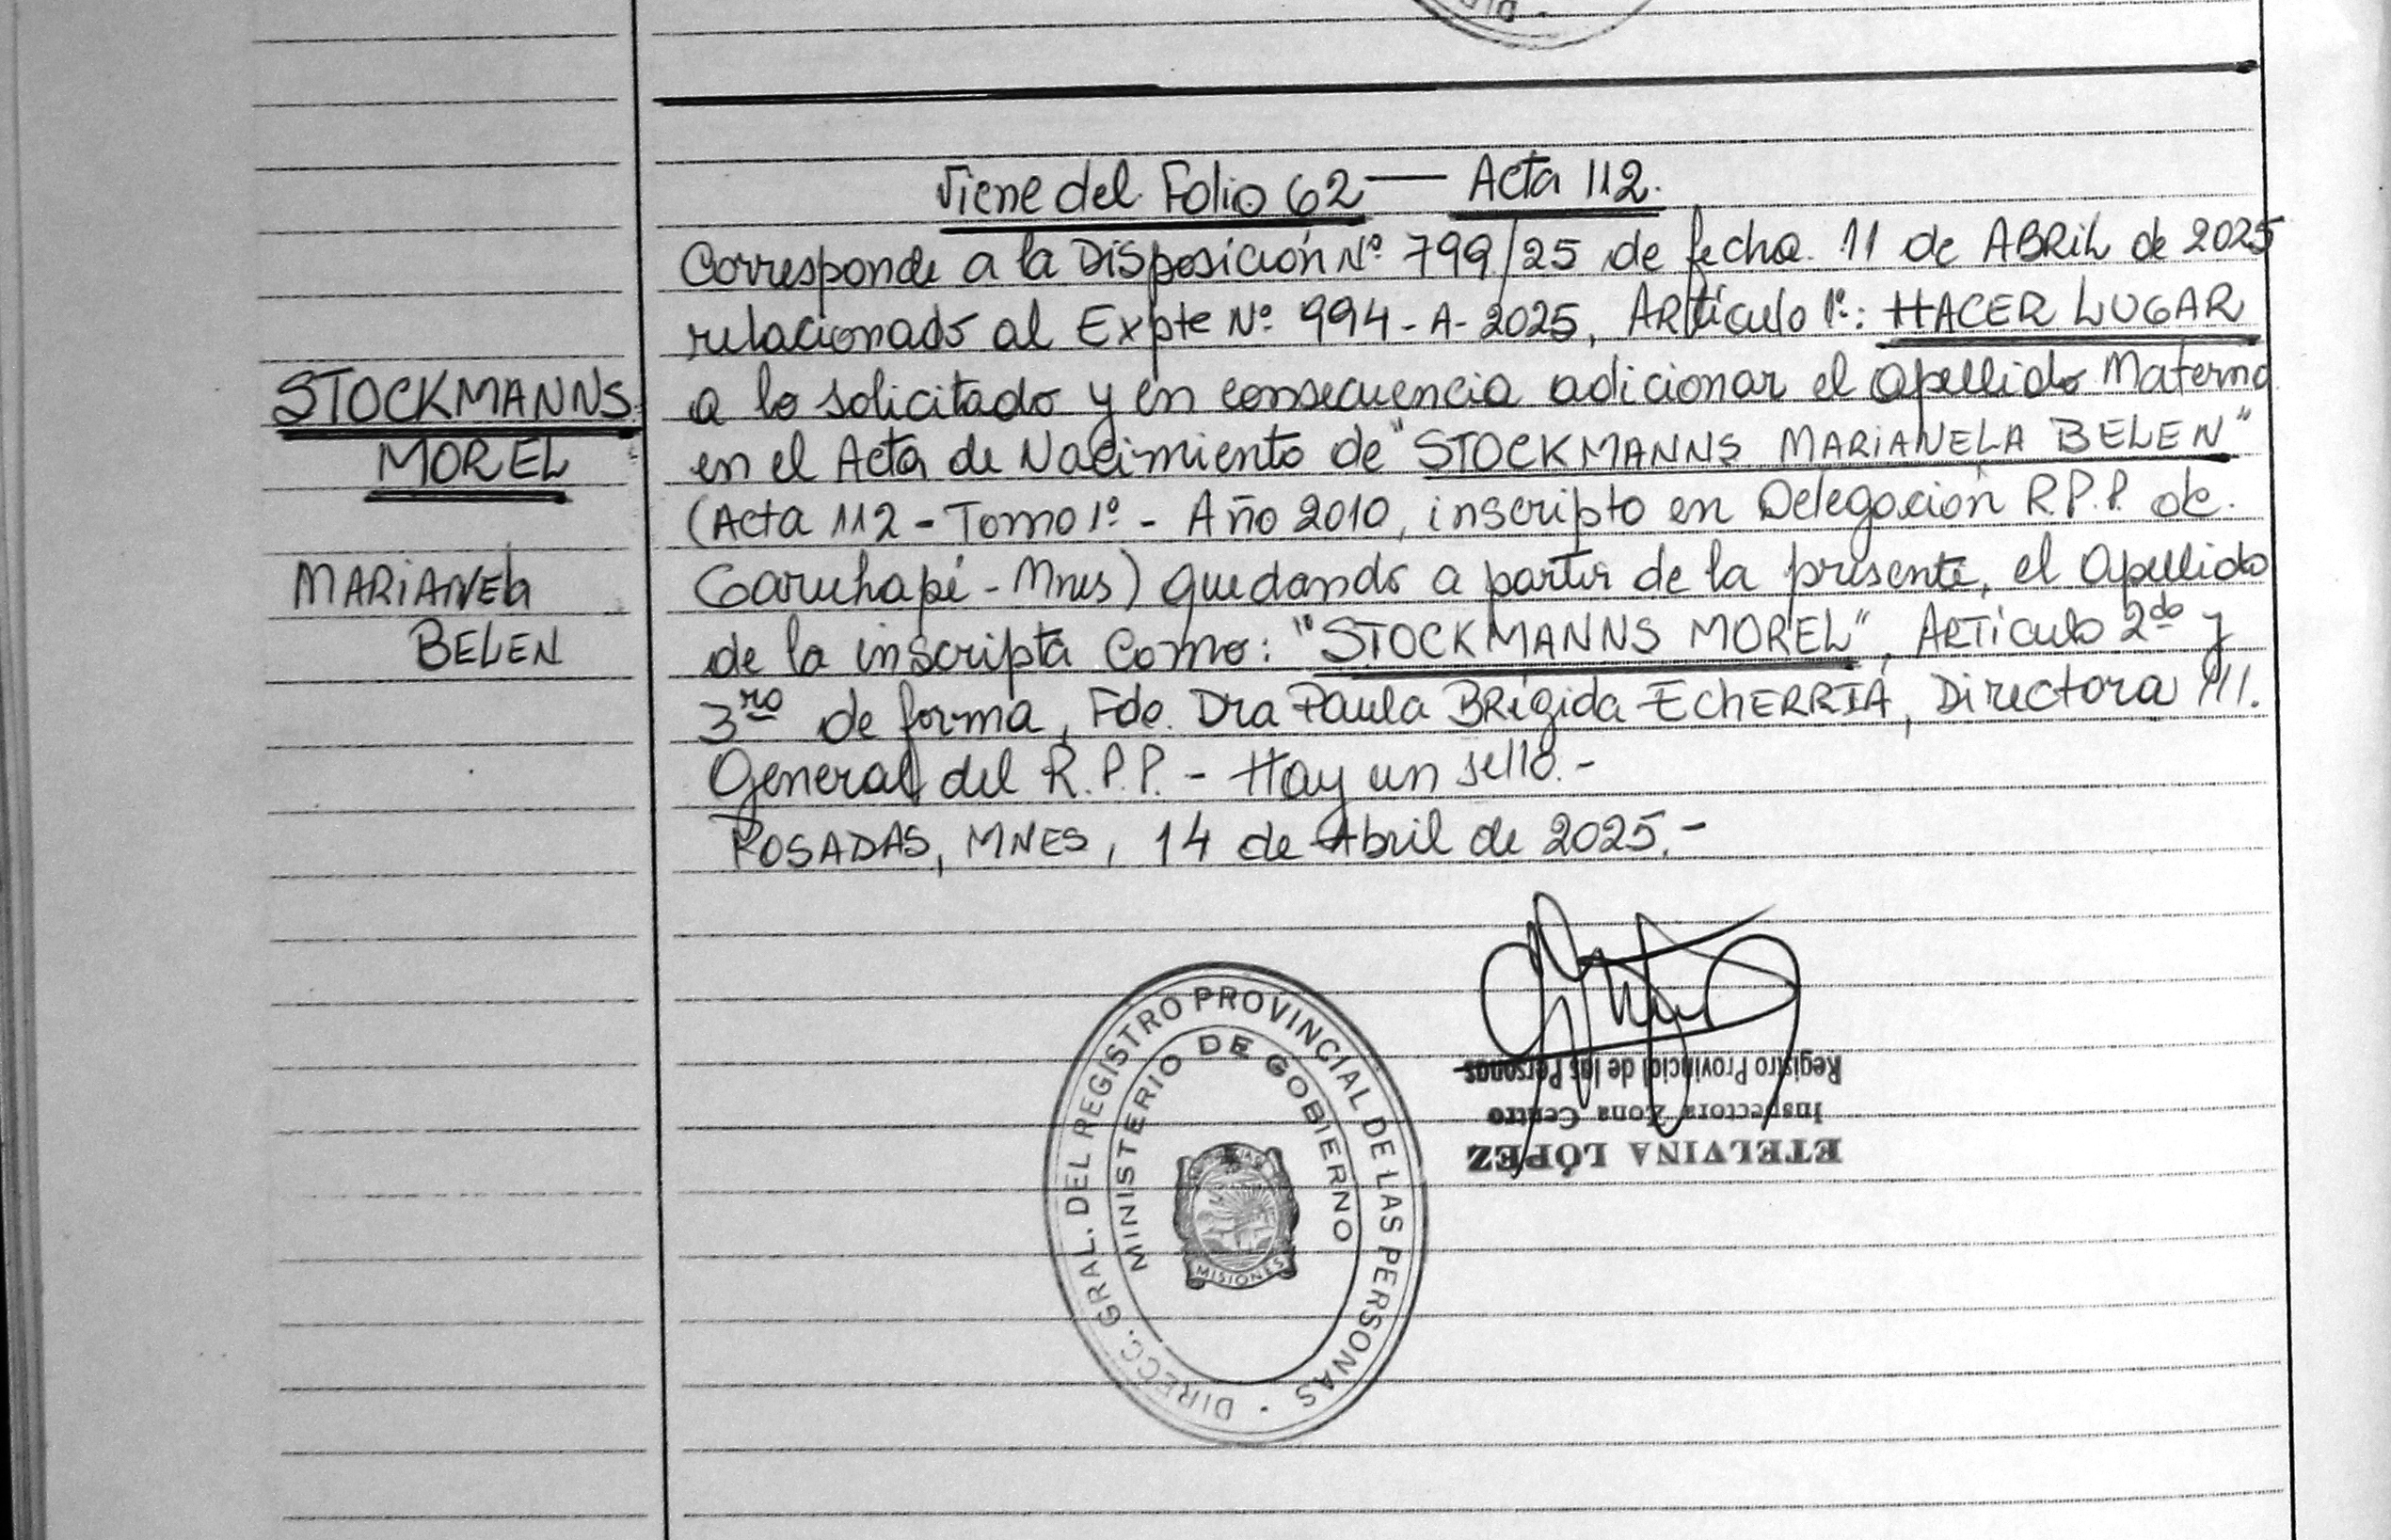 Viene del Folio 62 — Acta 112.
Corresponde a la Disposición Nº 799/25 de fecha 11 de ABRIL de 2025
relacionado al Expte Nº 994-A-2025, ARtículo 1º: HACER LUGAR
a lo solicitado y en consecuencia adicionar el apellido Materno
en el Acta de Nacimiento de "STOCKMANNS MARIANELA BELEN"
(Acta 112 - Tomo 1º - Año 2010, inscripto en Delegación R.P.P. de
Garuhapé - Mnes) quedando a partir de la presente, el Apellido
de la inscripta Como: "STOCKMANNS MOREL", ARTículo 2do y
3ro de forma, Fdo. Dra Paula BRígida EcHERRIA, Directora ///.
General del R.P.P. - Hay un sello.-
POSADAS, MNES, 14 de Abril de 2025.-
STOCKMANNS
MOREL
MARIANELA
BELEN
DIRECC. GRAL. DEL REGISTRO PROVINCIAL DE LAS PERSONAS
MINISTERIO DE GOBIERNO
MISIONES
ETELVINA LÓPEZ
Inspectora Zona Centro
Registro Provincial de las Personas